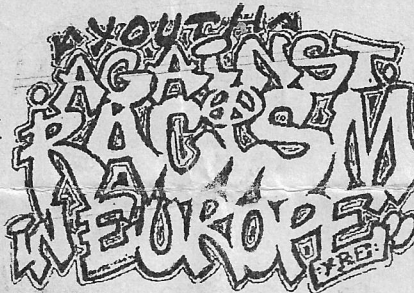 YOUTH
AGAINST
RACISM
IN EUROPE